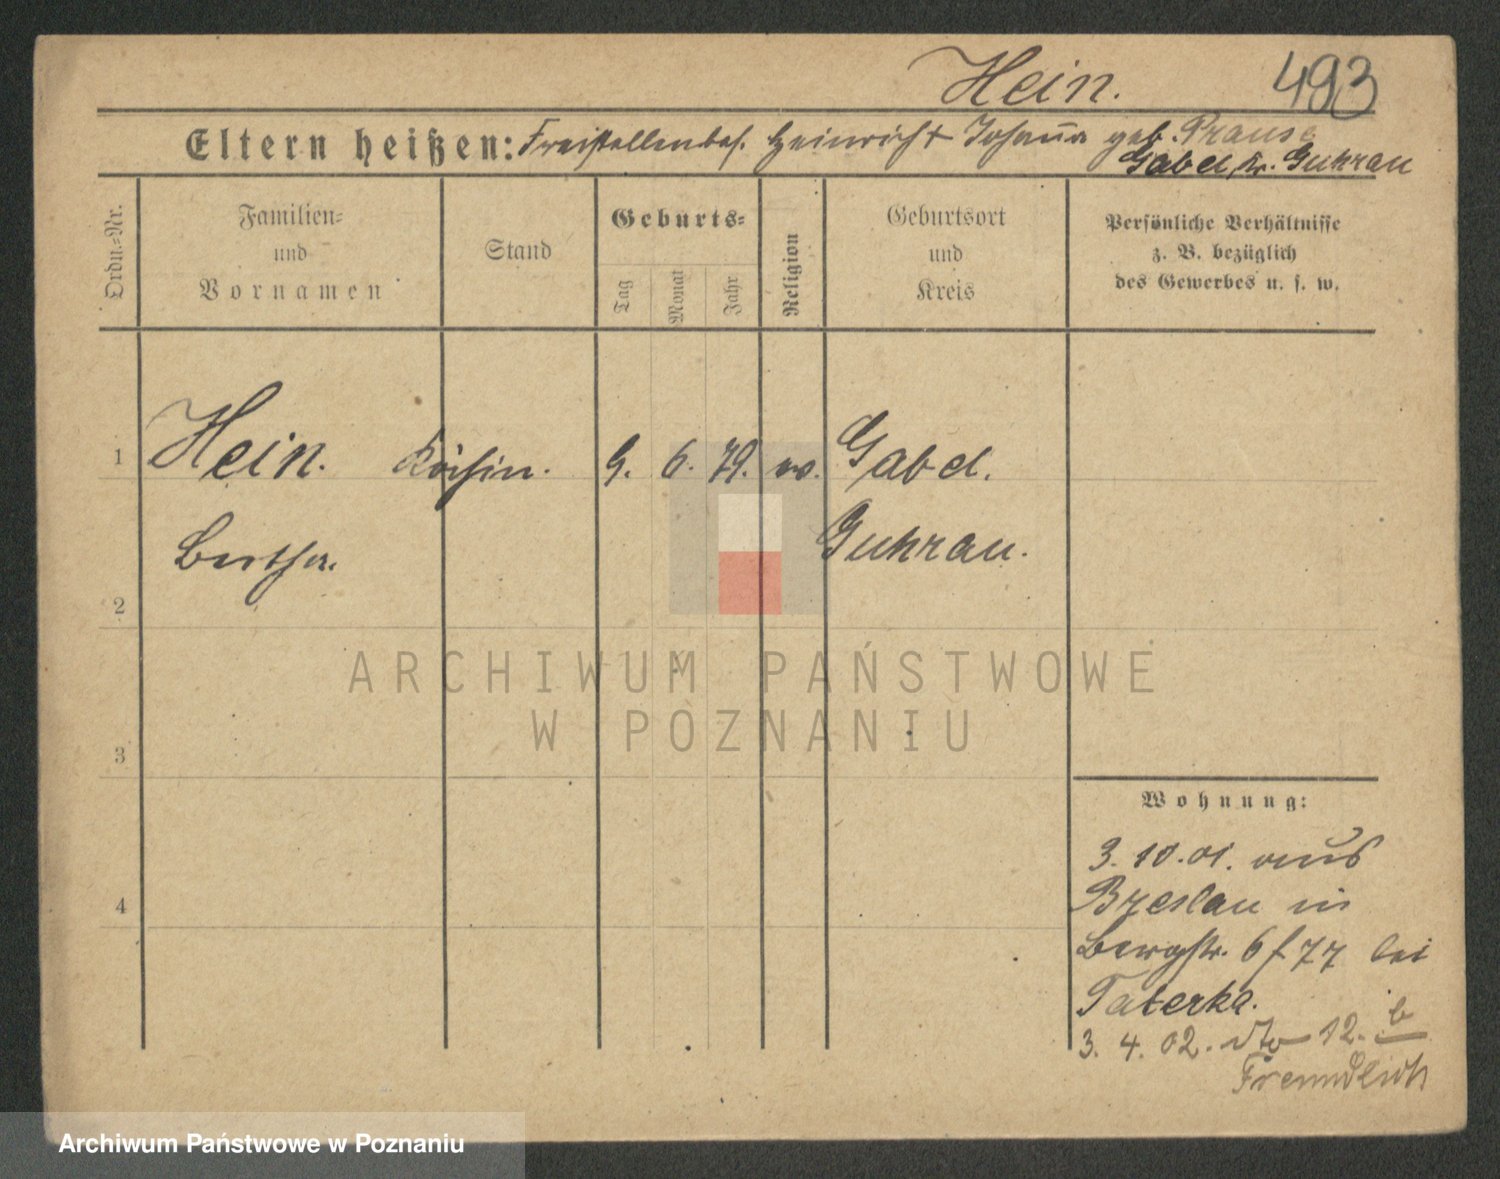 Hein. 493
Eltern heißen: Freistellenbes. Heinrich + Johanna geb. Prause
Gabel, Kr. Guhrau
Ordn.=Nr.
Familien=
und
Vornamen
Stand
Geburts=
Tag
Monat
Jahr
Religion
Geburtsort
und
Kreis
Persönliche Verhältnisse
z. B. bezüglich
des Gewerbes u. s. w.
1 Hein. Köchin. 9. 6. 79. ev. Gabel.
Bertha. Guhrau.
2
3
4
ARCHIWUM PAŃSTWOWE
W POZNANIU
Wohnung:
3. 10. 01. aus
Breslau in
Bergstr. 6 f 77 bei
Taterka.
3. 4. 02. dto 12. b
Freundlich
Archiwum Państwowe w Poznaniu